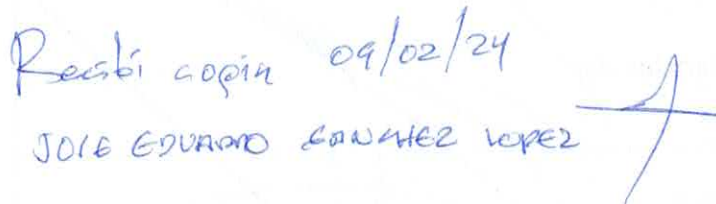 Recibí copia 09/02/24
JOSE EDUARDO SANCHEZ LOPEZ